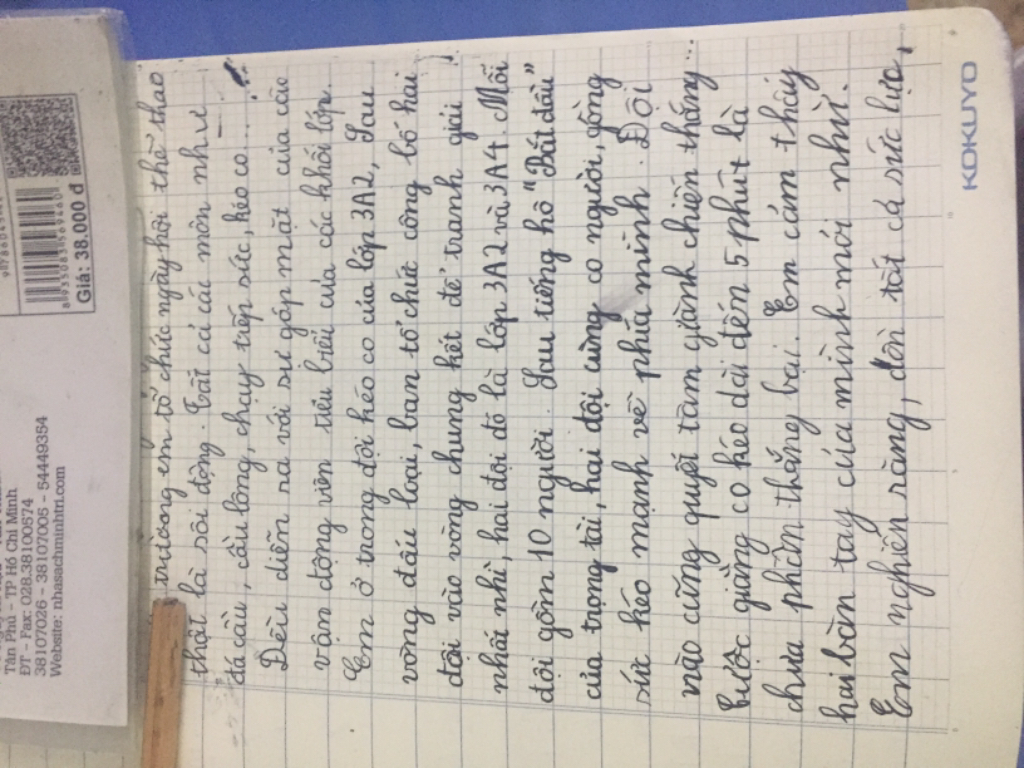 trường em tổ chức ngày hội thể thao
thật là sôi động. Tất cả các môn như
đá cầu, cầu lông, chạy tiếp sức, kéo co...
Đều diễn ra với sự góp mặt của các
vận động viên tiêu biểu của các khối lớp.
Em ở trong đội kéo co của lớp 3A2, Sau
vòng đấu loại, ban tổ chức công bố hai
đội vào vòng chung kết để tranh giải
nhất nhì, hai đội đó là lớp 3A2 và 3A4. Mỗi
đội gồm 10 người. Sau tiếng hô "Bắt đầu"
của trọng tài, hai đội cùng co người, gồng
sức kéo mạnh về phía mình. Đội
nào cũng quyết tâm giành chiến thắng...
cuộc giằng co kéo dài đến 5 phút là
chưa phần thắng bại. Em cảm thấy
hai bàn tay của mình mới nhừ.
Em nghiến răng, dồn tất cả sức lực,
KOKUYO
Giá: 38.000 đ
Tân Phú - TP Hồ Chí Minh
ĐT - Fax: 028.38100574
38107026 - 38107005 - 54449354
Website: nhasachminhtri.com